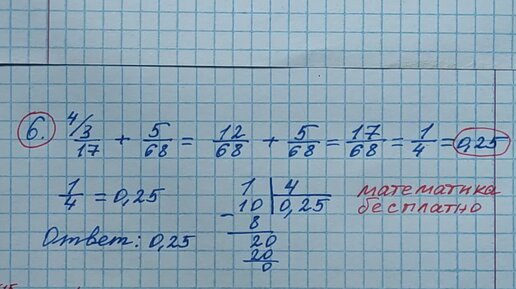 6. ⁴/3/17 + 5/68 = 12/68 + 5/68 = 17/68 = 1/4 = 0,25
1/4 = 0,25
1 | 4
10 | 0,25
- 8
20
20
0
математика
бесплатно
Ответ: 0,25